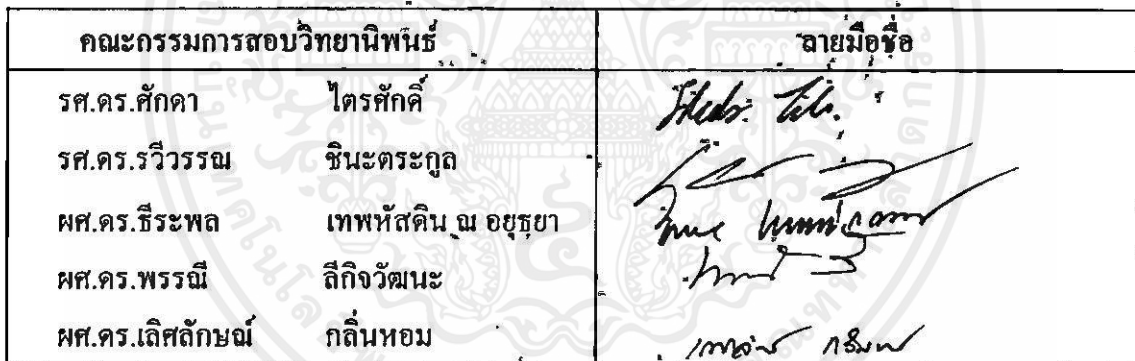 คณะกรรมการสอบวิทยานิพนธ์ ลายมือชื่อ
รศ.ดร.ศักดา ไตรศักดิ์
รศ.ดร.รวีวรรณ ชินะตระกูล
ผศ.ดร.ธีระพล เทพหัสดิน ณ อยุธยา
ผศ.ดร.พรรณี ลีกิจวัฒนะ
ผศ.ดร.เลิศลักษณ์ กลิ่นหอม